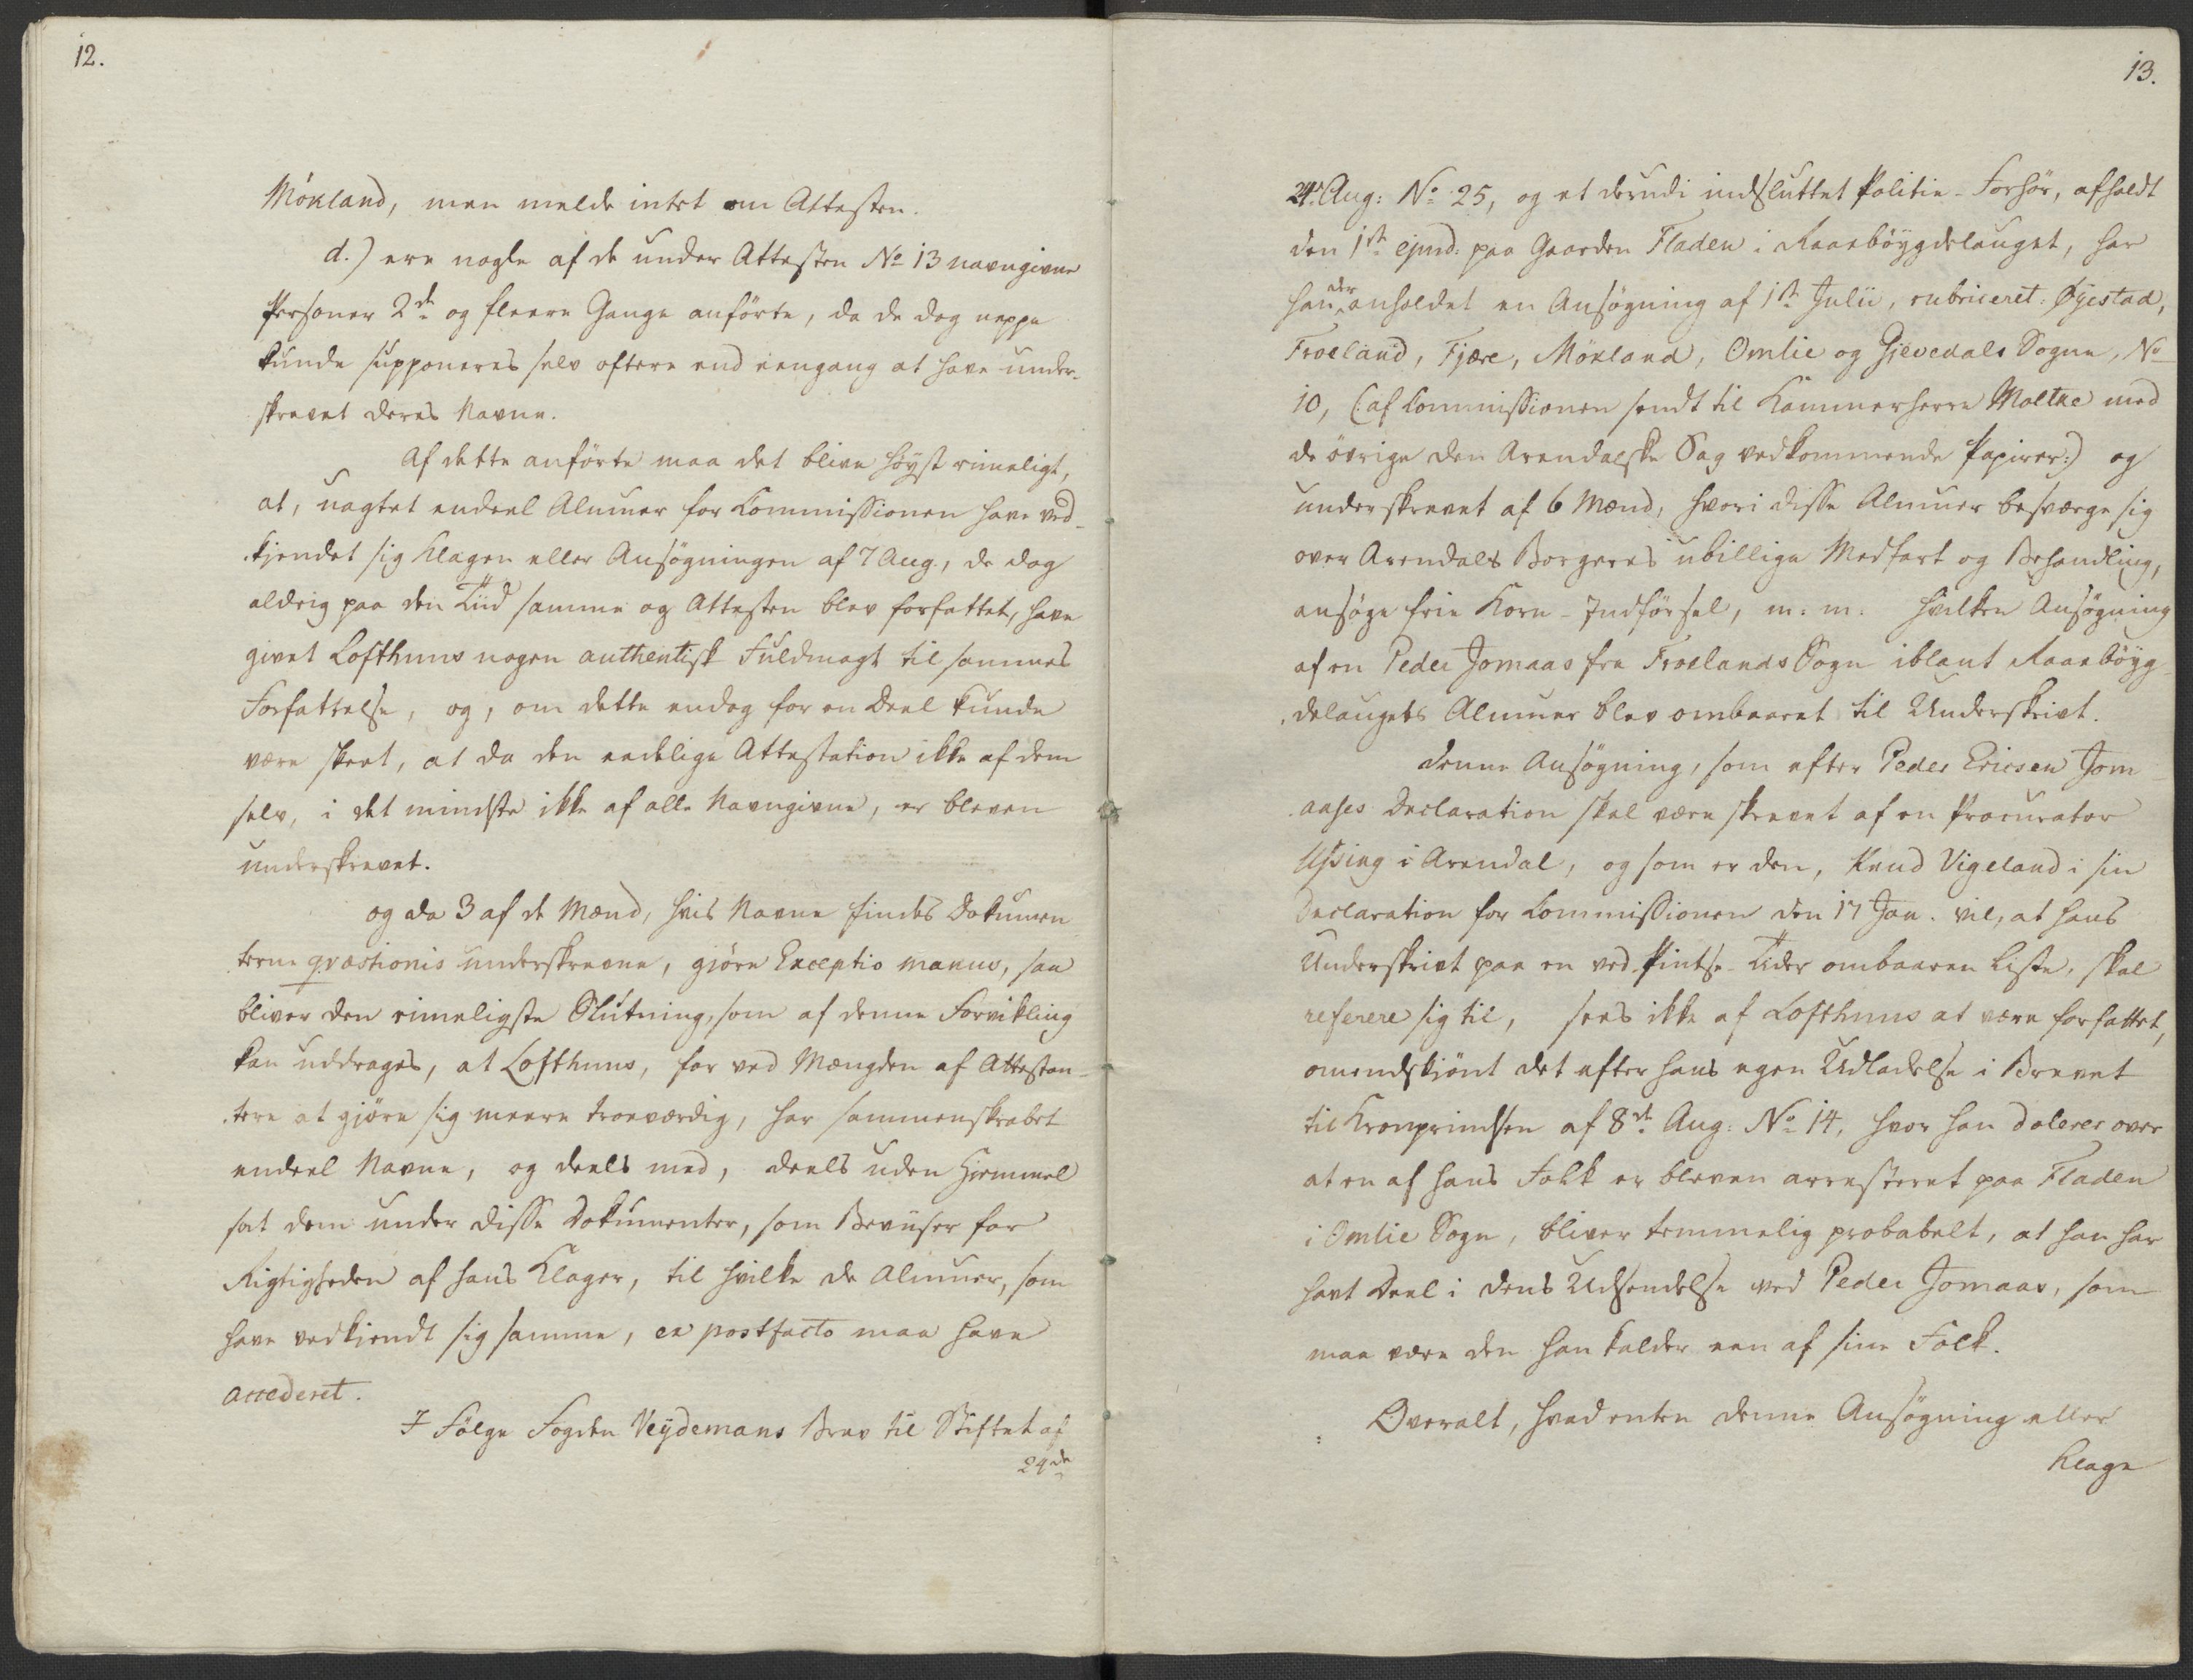 12.
Mökland, men melde intet om Attesten.
d.) ere nogle af de under Attesten No 13 navngivne
Personer 2de og fleere Gange anförte, da de dog neppe
kunde supponeres selv oftere end eengang at have under-
skrevet deres Navne.
Af dette anförte maa det blive höyst rimeligt,
at, uagtet endeel Almuer for Commissionen have ved-
kjendet sig Klagen eller Ansögningen af 7 Aug., de dog
aldrig paa den Tiid samme og Attesten blev forfattet, have
givet Lofthuus nogen authentisk Fuldmagt til sammes
Forfattelse, og, om dette endog for en Deel kunde
være skeet, at da den eedelige Attestation ikke af dem
selv, i det mindste ikke af alle Navngivne, er bleven
underskrevet.
og da 3 af de Mænd, hvis Navne findes Dokumen
terne qvæstionis underskrevne, gjöre Exceptio manus, saa
bliver den rimeligste Slutning, som af denne Forvikling
kan uddrages, at Lofthuus, for ved Mængden af Attestan-
tere at gjöre sig meere troeværdig, har sammenskrabet
endeel Navne, og deels med, deels uden Hiemmel
sat dem under disse Dokumenter, som Beviiser for
Rigtigheden af hans Klager, til hvilke de Almuer, som
have vedkjendt sig samme, ex postfacto maa have
accederet.
I Fölge Fogden Weydemans Brev til Stiftet af
24de
13.
24. Aug: No 25, og et derudi indsluttet Politie-Forhör, afholdt
den 1st ejusd: paa Gaarden Fladen i Raaeböygdelauget, har
han der anholdet en Ansögning af 1st Julii, rubriceret: Öyestad,
Froeland, Fjære, Mökland, Omlie og Gjevedals Sogne, No
10, (:af Commissionen sendt til Kammerherre Moltke med
de övrige den Arendalske Sag vedkommende Papirer:) og
underskrevet af 6 Mænd, hvori disse Almuer besværge sig
over Arendals Borgeres ubillige Medfart og Behandling,
ansöge frie Korn-Indförsel, m: m: hvilken Ansögning
af en Peder Jomaas fra Froelands Sogn iblant Raaeböyg-
delaugets Almuer blev ombaaret til Underskrivt.
Denne Ansögning, som efter Peder Ericsen Jom-
aases Declaration skal være skrevet af en Procurator
Ussing i Arendal, og som er den, Knud Vigeland i sin
Declaration for Commissionen den 17 Jan. vil, at hans
Underskrivt paa en ved Pintse-Tider ombaaren Liste, skal
referere sig til, sees ikke af Lofthuus at være forfattet,
omendskiönt det efter hans egen Udladelse i Brevet
til Kronprindsen af 8de Aug: No 14, hvor han dolerer over
at en af hans Folk er bleven arresteret paa Fladen
i Omlie Sogn, bliver temmelig probabelt, at han har
havt Deel i dens Udsendelse ved Peder Jomaas, som
maa være den han kalder een af sine Folk.
Overalt, hvad enten denne Ansögning eller
Klage